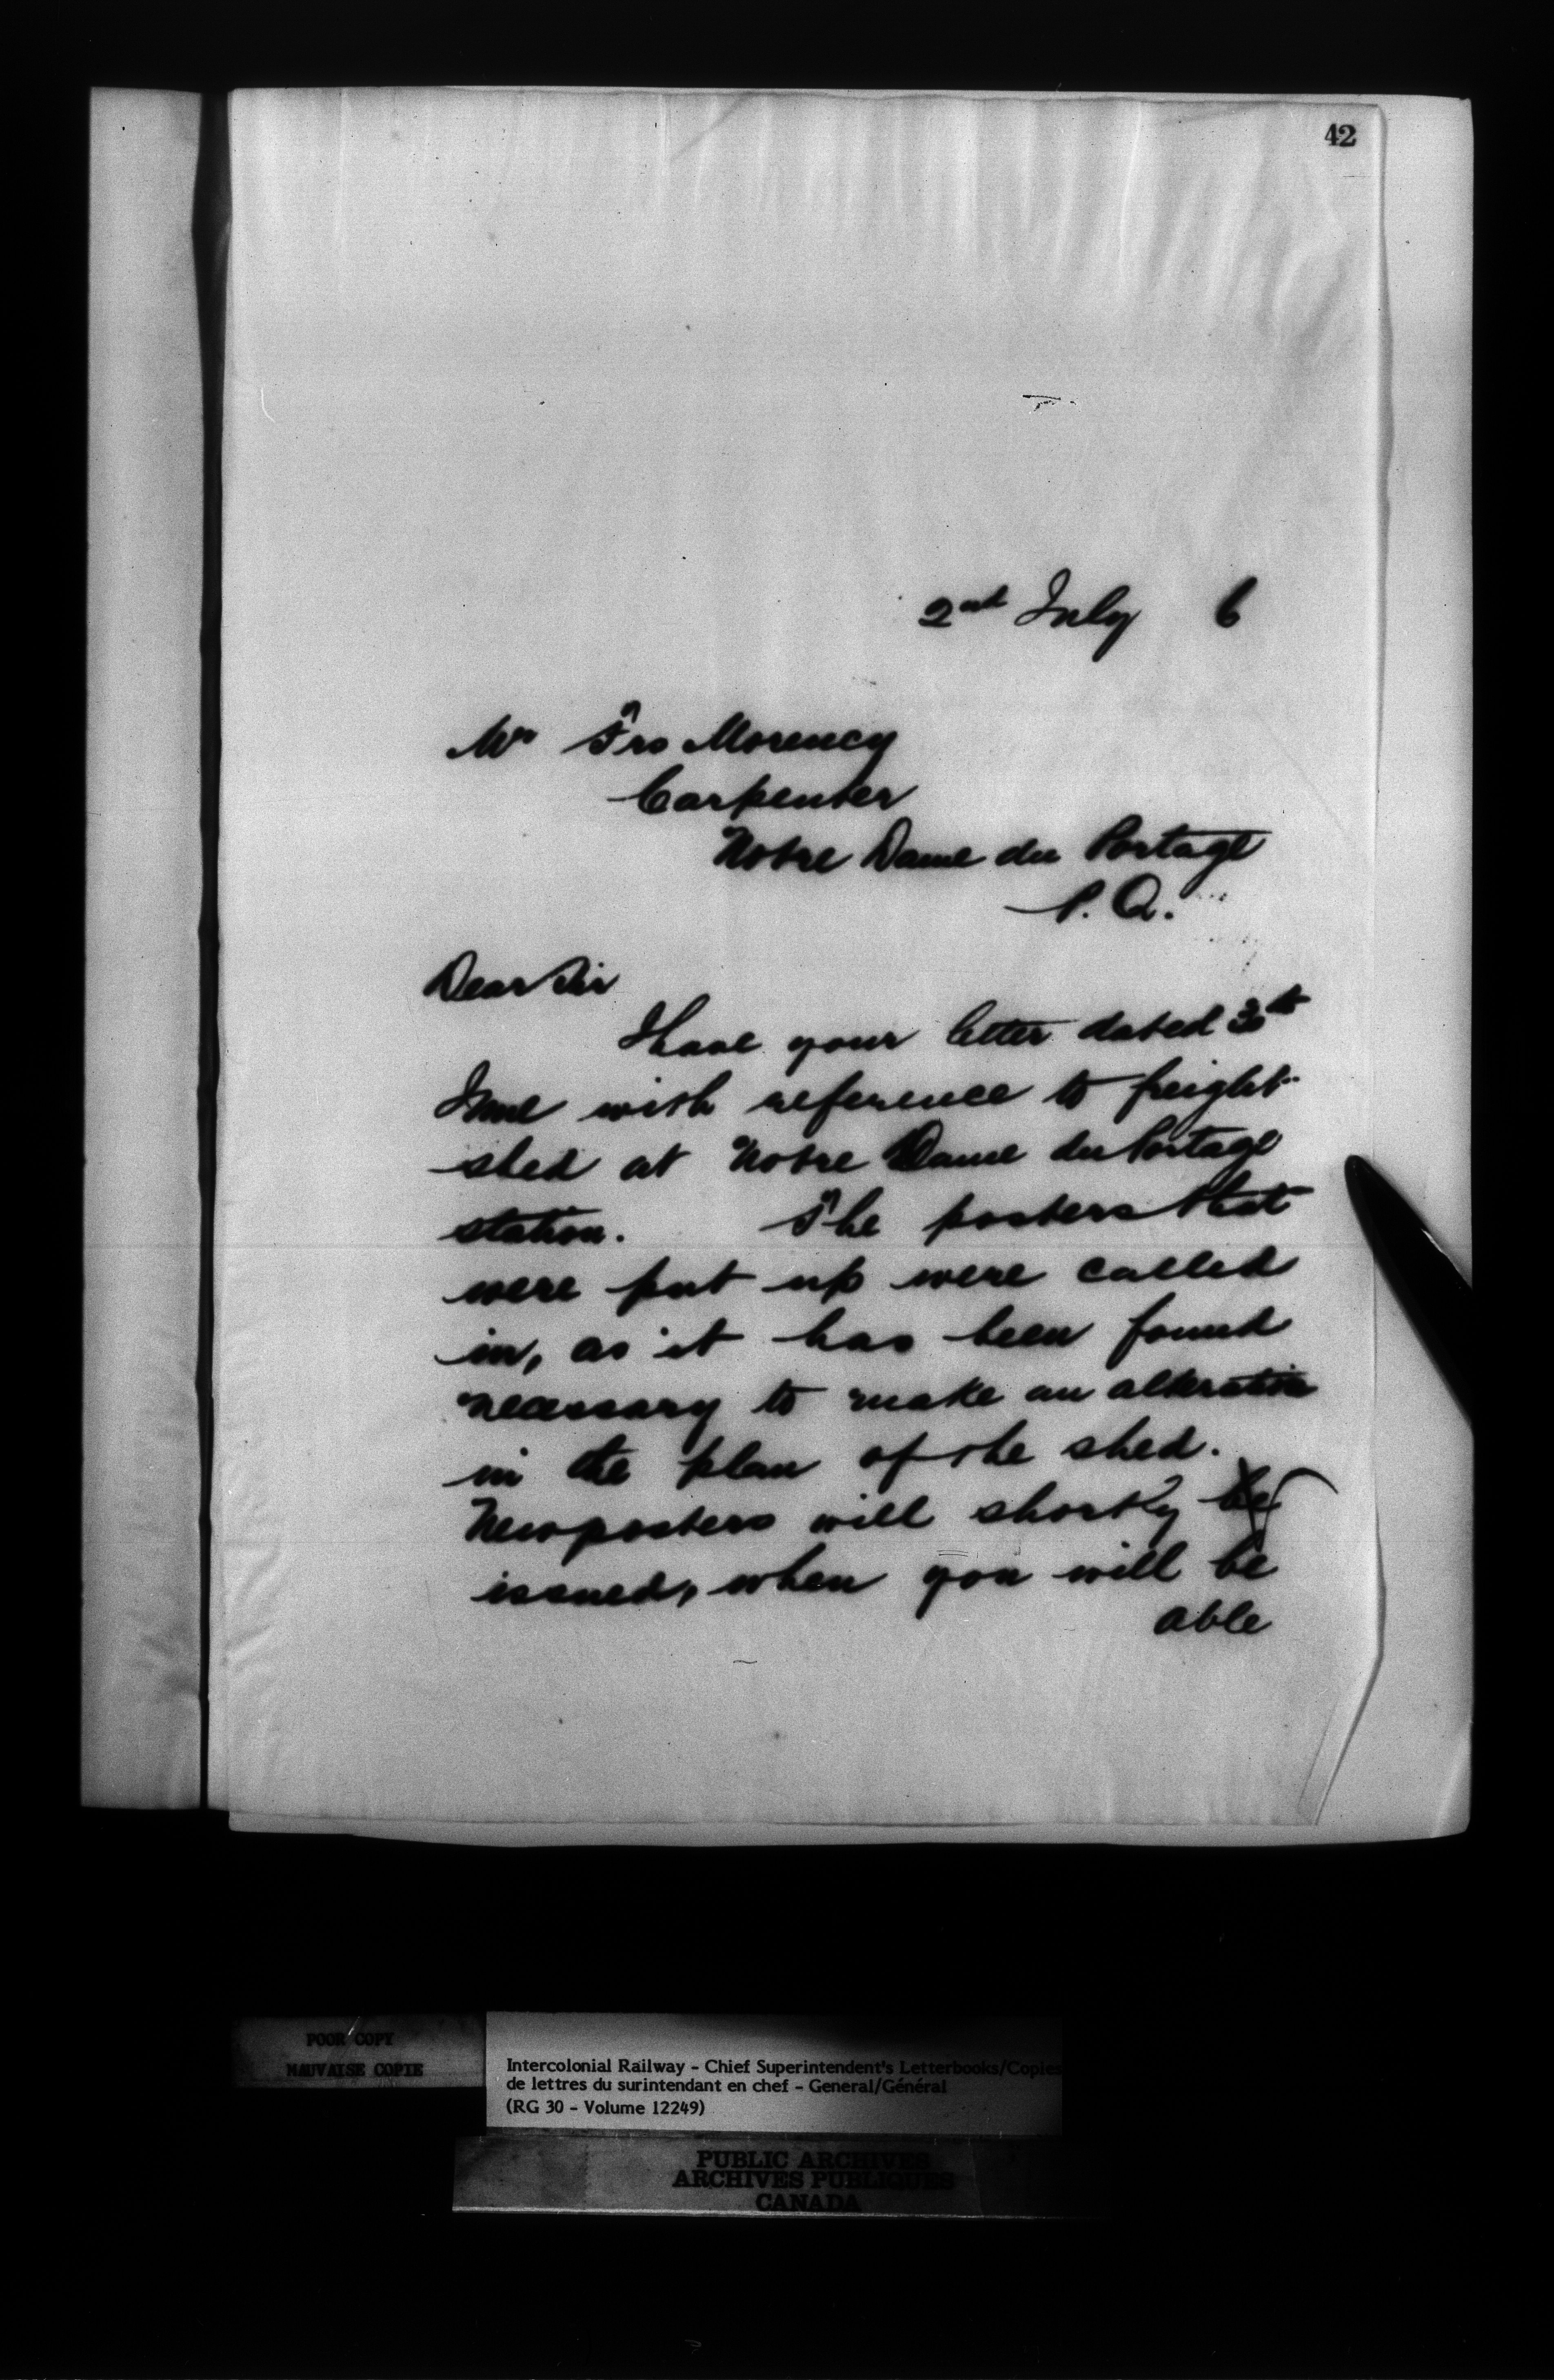 42
2nd July 6
Mr Frs Morency
Carpenter
Notre Dame du Portage
P. Q.
Dear Sir
I have your letter dated 30th
June with reference to freight
shed at Notre Dame du Portage
station. The posters that
were put up were called
in, as it has been found
necessary to make an alteration
in the plan of the shed.
New posters will shortly be
issued, when you will be
able
POOR COPY
MAUVAISE COPIE
Intercolonial Railway - Chief Superintendent's Letterbooks/Copies
de lettres du surintendant en chef - General/Général
(RG 30 - Volume 12249)
PUBLIC ARCHIVES
ARCHIVES PUBLIQUES
CANADA